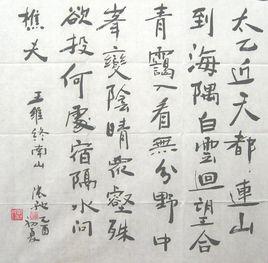 太乙近天都連山
到海隅白雲迴望合
青靄入看無分野中
峯變陰晴眾壑殊
欲投何處宿隔水問
樵夫
王維終南山
乙酉
初夏